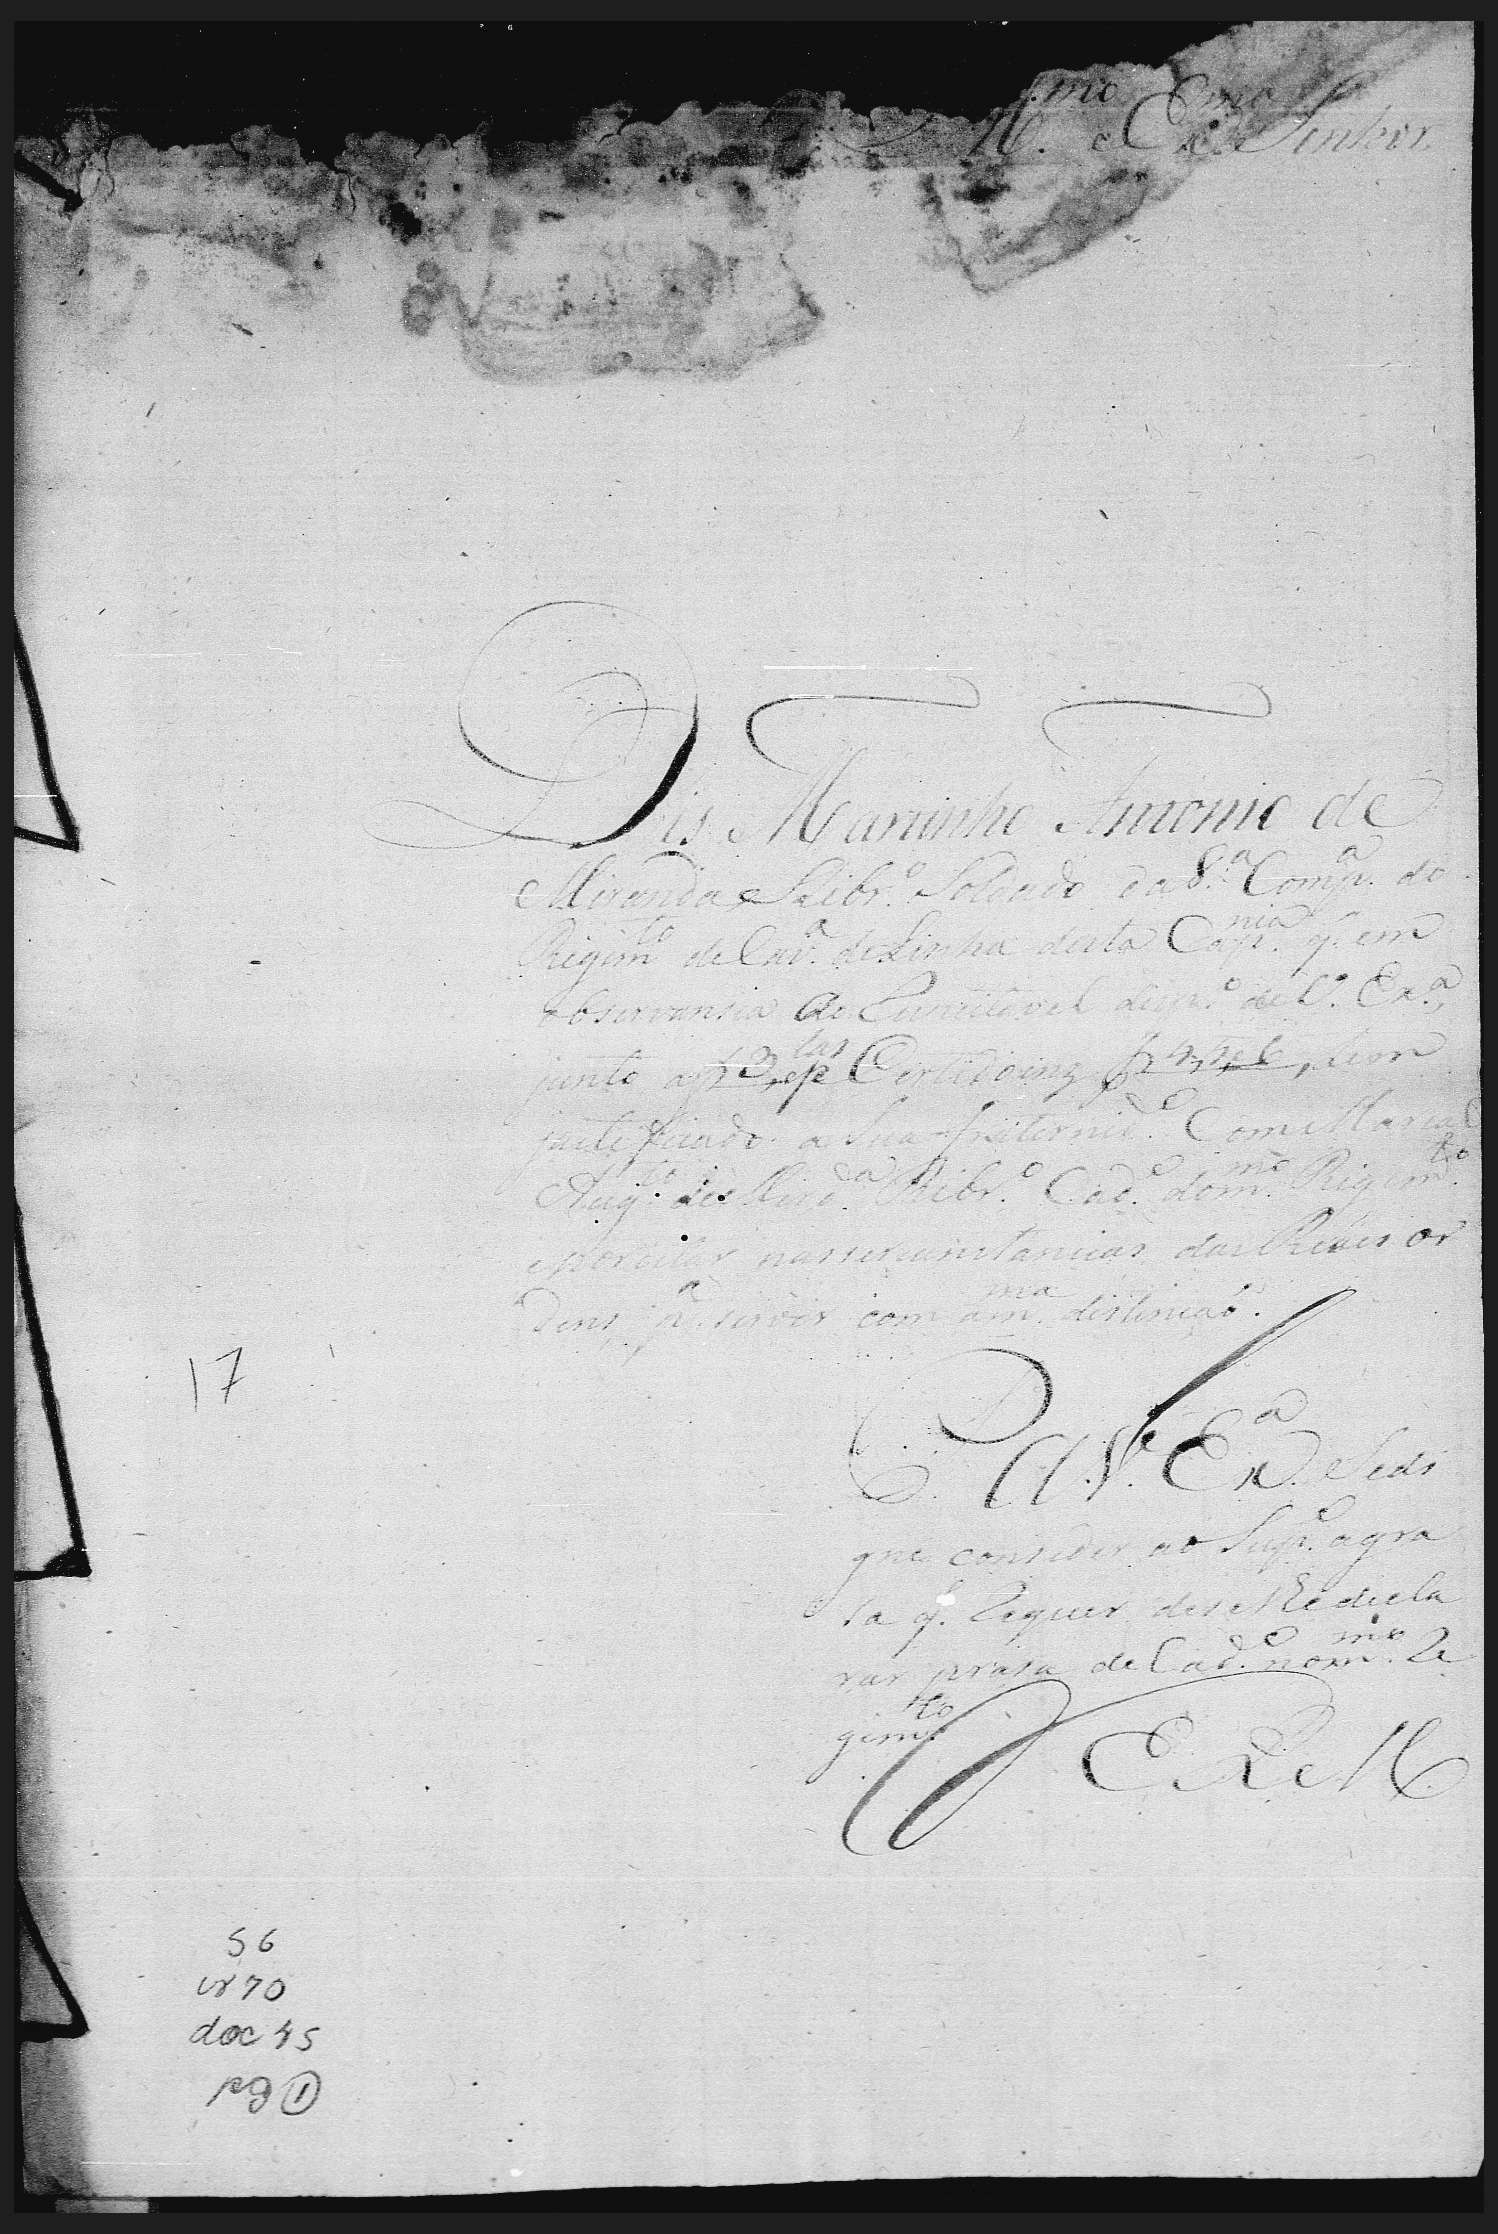 Il.mo e Ex.mo Senhor
Dis Marinho Antonio de
Miranda Ribr.o Soldado da 8.a Comp.a do
Regim.to de Cav.a de Linha desta Cap.nia q. em
observansia do Respeitavel desp.o de V. Ex.a,
junto a f 3, e p.las Certidoins f 4, 5, e 6, tem
justificado a sua fraternid.e Com Marcal
Aug.to de Mird.a Ribr.o Cad.e do m.mo Regim.to
e por estar nas sircunstancias das Reáes or
dens p.a servir com a m.ma distincaõ.
P. a V. Ex.a Se di
gne conseder ao Sup.e a gra
sa q. Requer de se lhe decla
rar prasa de Cad.e no m.mo Re
gim.to
E R M
17
56
cx 70
doc 45
pg 1